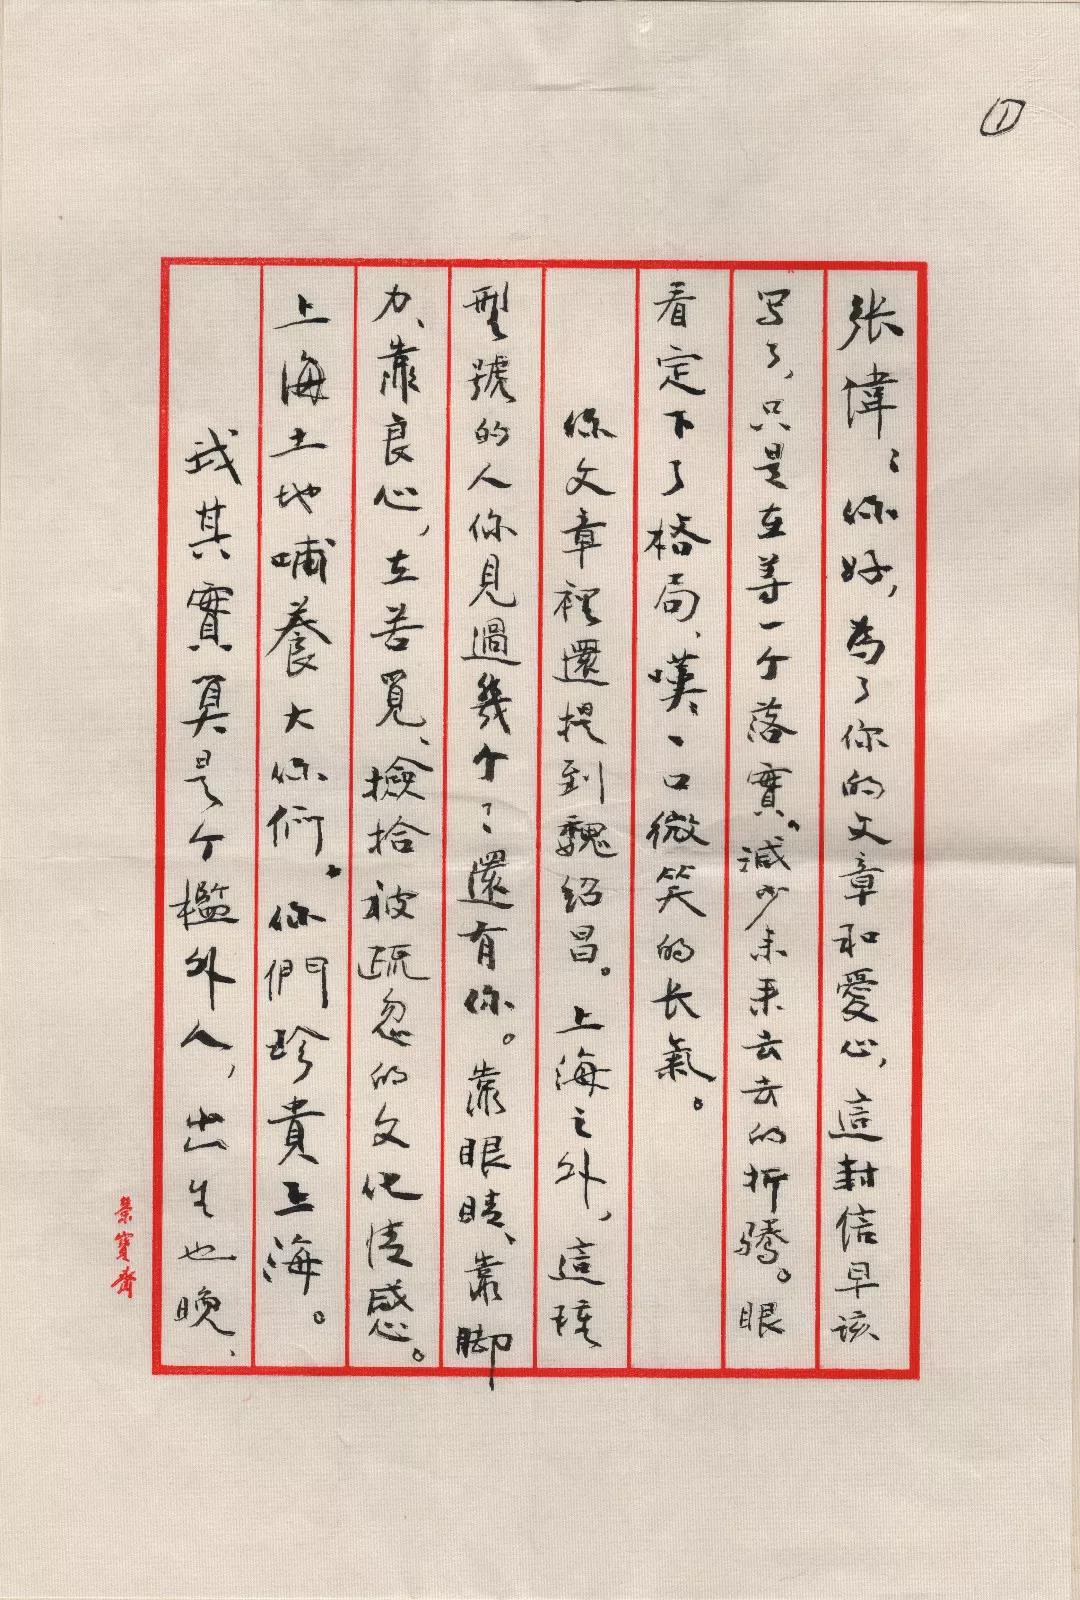 ①
张偉：你好，为了你的文章和愛心，這封信早该
写了，只是在等一个落實。减少来来去去的折騰。眼
看定下了格局、嘆一口微笑的长氣。
你文章裡還提到魏绍昌。上海之外，這種
型號的人你見過幾个？還有你。靠眼睛、靠脚
力、靠良心，在苦覓、撿拾被疏忽的文化情感。
上海土地哺養大你们。你們珍貴上海。
我其實真是个檻外人，出生也晚、
榮寳齋